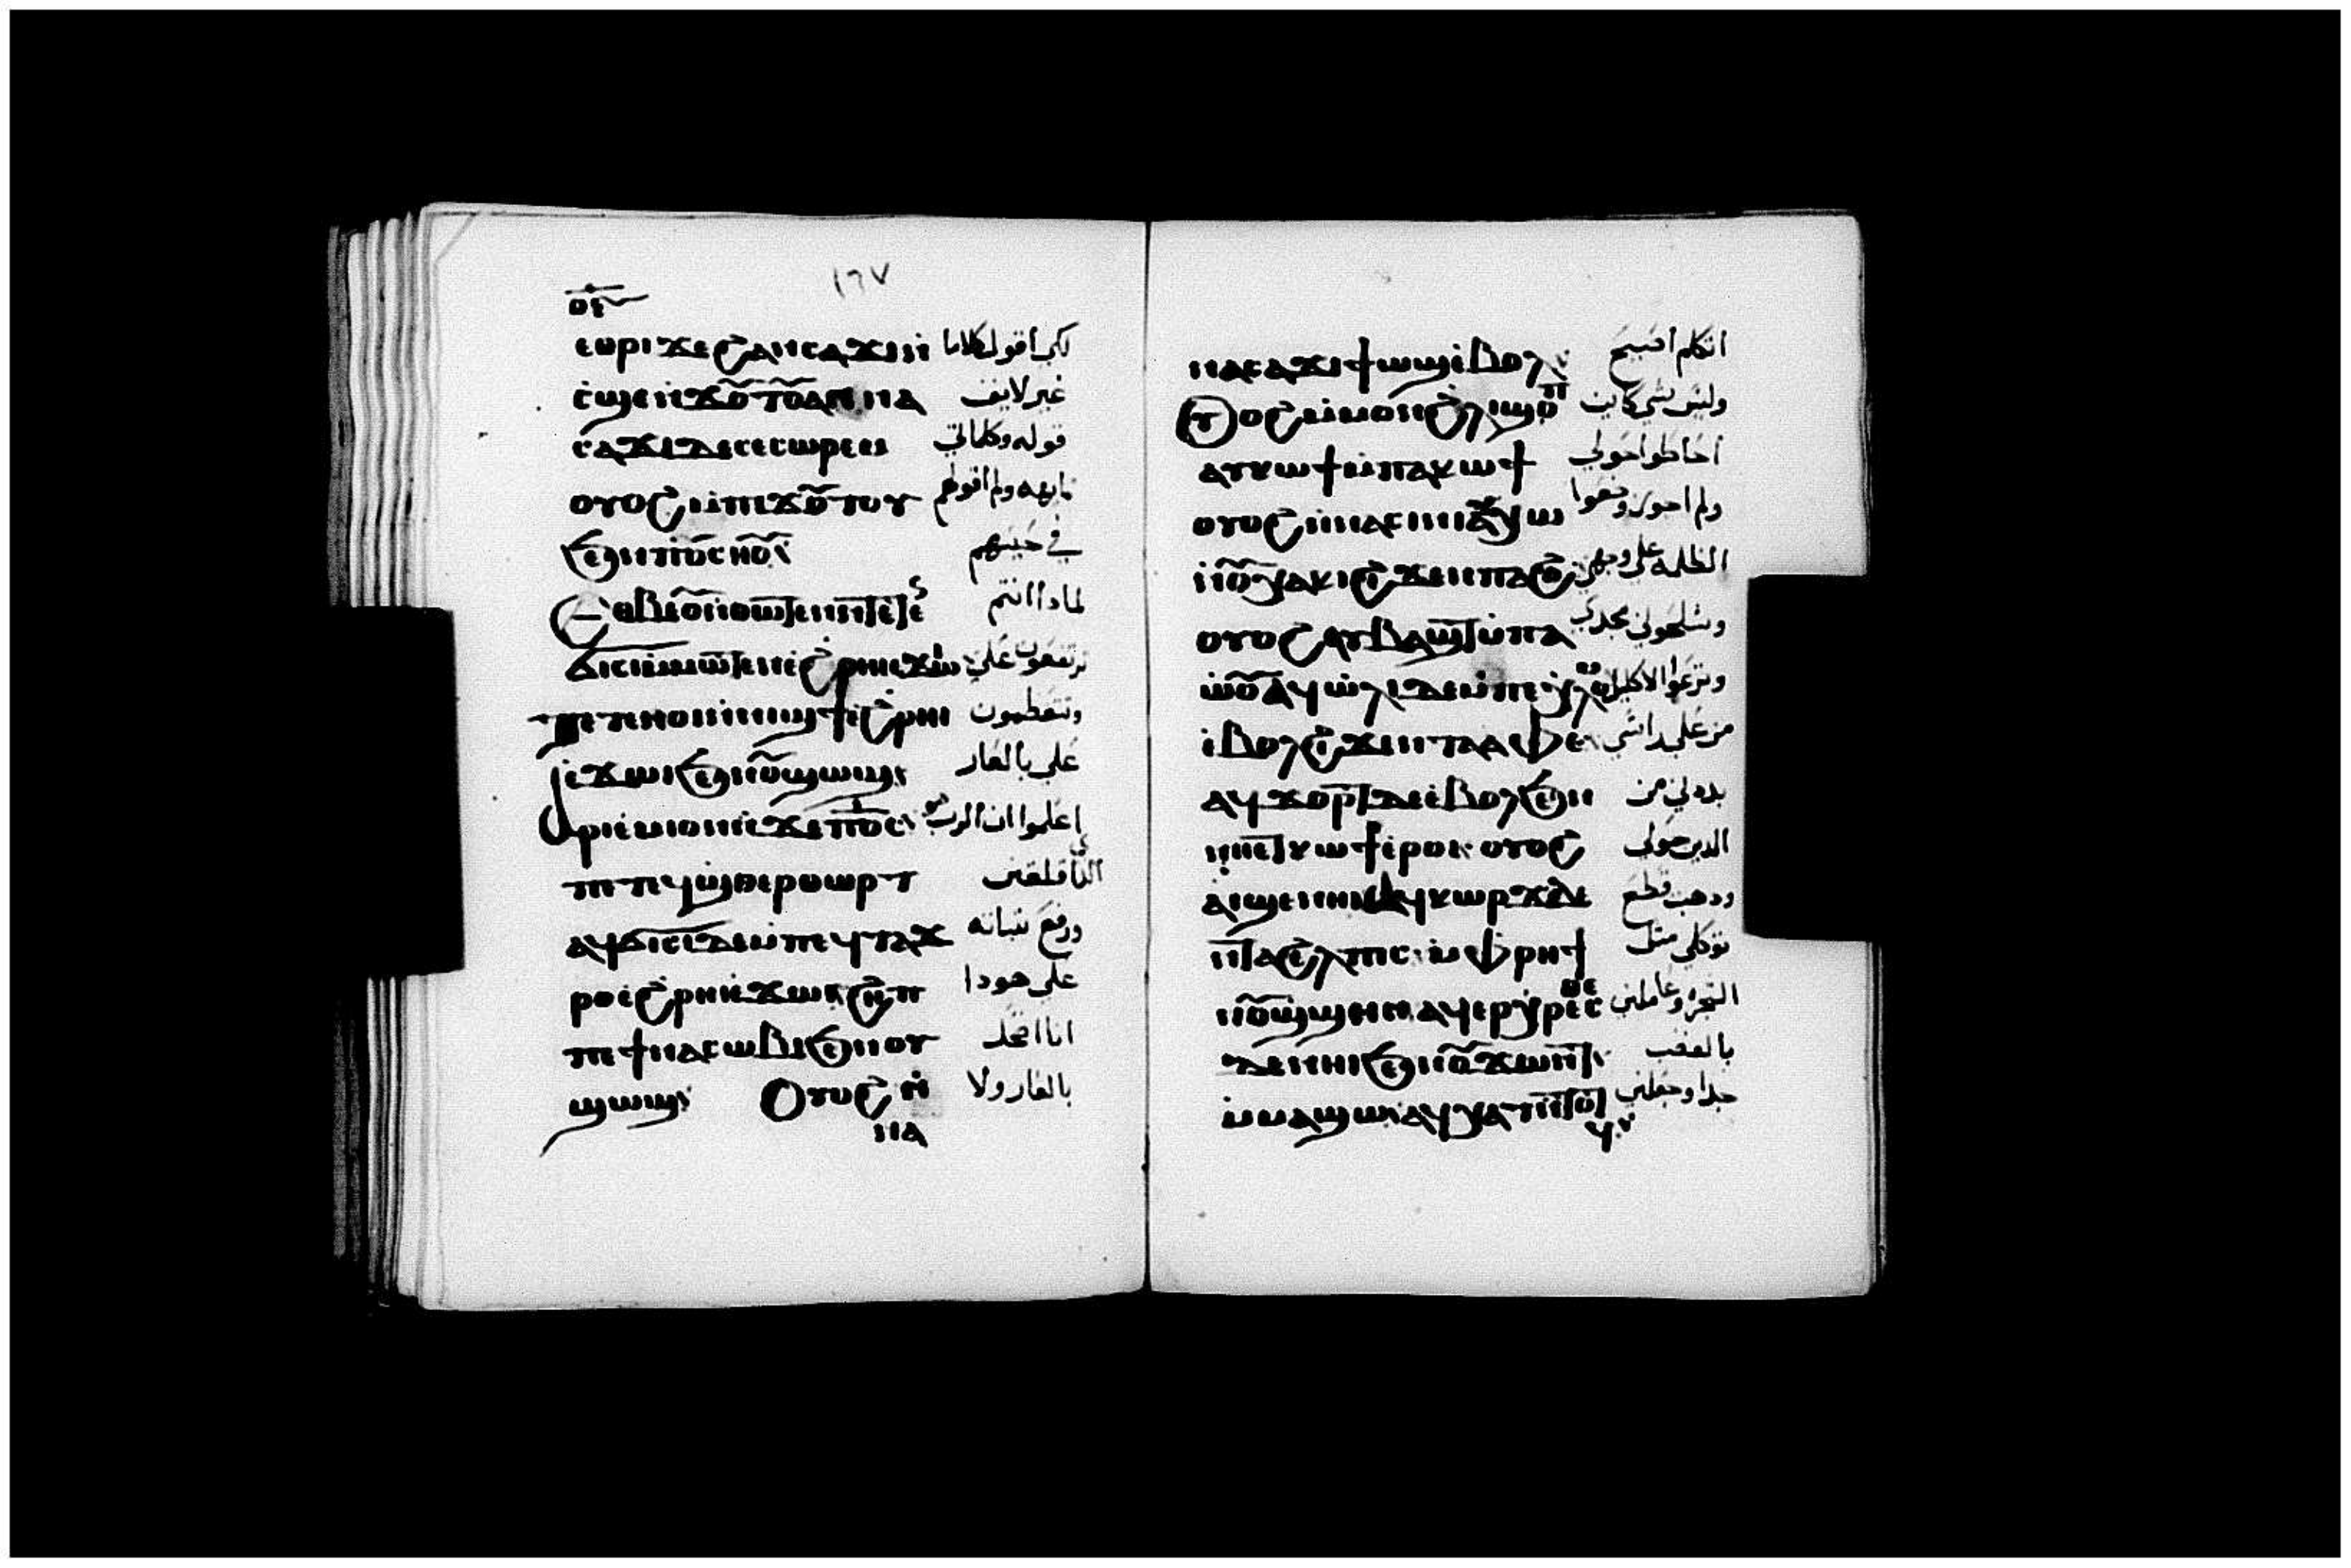 ⲟⲋ ١٦٧
ⲉⲑⲣⲓϫⲉϩⲁⲛⲥⲁϫⲓⲛ̇ لكي اقول كلاما
ⲥ̇ϣⲉⲛ̇ϫⲟ̅ⲧⲟ̅ⲁⲛ ⲛⲁ غير لايق
ⲥⲁϫⲓⲇⲉⲥⲉⲥⲱⲣⲉⲙ قوله وكلماتي
ⲟⲩⲟϩⲙ̇ⲡⲓϫⲟ̅ⲧⲟⲩ تايهه ولم اقولهم
ϧⲉⲛⲡⲟ̅ⲥⲏⲟ̅ⲩ في حينهم
ⲉⲑⲃⲉⲟ̅ⲛ̇ⲑⲱⲧⲉⲛⲧⲉⲧⲉ لماذا انتم
ϭⲓⲥⲓⲙ̇ⲙⲱⲧⲉⲛⲉ̇ϩⲣⲏⲓⲉϫⲱⲓ ترتفعون علي
ⲧⲉⲧⲉⲛⲟⲓⲛ̇ⲛⲓϣϯⲉ̇ϩⲣⲏⲓ وتتعظمون
ⲉ̇ϫⲱⲓϧⲉⲛⲟ̅ϣⲱϣ علي بالعار
ⲁⲣⲓⲉ̇ⲙⲓⲟⲩⲛϫⲉⲡⲟ̅ⲥ̅ اعلموا ان الرب هو
ⲡⲉⲧⲁϥϣ̇ⲑⲉⲣⲑⲱⲣⲧ الذي اقلقني
ⲁϥϭⲓⲥⲓⲇⲉⲙ̇ⲡⲉϥⲧⲁϫ ورفع ثباته
ⲣⲟⲉ̇ϩⲣⲏⲓⲉ̇ϫⲱⲓϩⲏⲡ علي هوذا
ⲡⲉϯⲛⲁⲥⲱⲃⲓϧⲉⲛⲟⲩ انا اضحك
ϣⲱϣ ⲟⲩⲟϩⲛ̇ بالعار ولا
ⲛⲁ
ⲛⲁⲥⲁϫⲓϯⲱϣⲉ̇ⲃⲟⲗ اتكلم افتضح
ⲟⲩⲟϩⲙ̇ⲙⲟⲛϩⲗⲓϣⲟ̅ⲡ وليس شي كاين
ⲁⲩⲕⲱϯⲙ̇ⲡⲁⲕⲱϯ احاطوا حولي
ⲟⲩⲟϩⲛ̇ⲛⲁⲥⲓⲛⲓⲁϥⲭⲱ ولم اجوز وضعوا
ⲛ̇ⲟ̅ⲭⲁⲕⲓϩⲓϫⲉⲛⲡⲁϩⲟ الظلمه علي وجهي
ⲟⲩⲟϩⲁⲩⲃⲁϣⲧⲙ̇ⲡⲁ وشلحوني مجدي
ⲱ̇ⲟ̅ⲩⲁϥⲱ̇ⲗⲓⲇⲉⲙ̇ⲡⲉⲭ̇ⲗⲟⲙ ونزعوا الاكليل
ⲉ̇ⲃⲟⲗϩⲓϫⲉⲛⲧⲁⲁⲫⲉ من علي راسي
ⲁϥϫⲟⲣⲧⲇⲉⲉ̇ⲃⲟⲗϧⲉⲛ بددني من
ⲛⲏⲉⲧⲕⲱϯⲉ̇ⲣⲟⲓ ⲟⲩⲟϩ الذين حولي
ⲁⲓϣⲉⲛⲏⲓ ⲁϥⲕⲱⲣϫⲇⲉ وذهبت قطع
ⲛ̇ⲧⲁϩⲉⲗⲡⲓⲥ ⲙ̇ⲫⲣⲏϯ توكلي مثل
ⲛ̇ⲟ̅ϣϣⲏⲛ ⲁϥⲉⲣⲭ̇ⲣⲉⲥⲑⲉ الشجره وعاملني
ⲇⲉⲛⲏⲓϧⲉⲛⲟ̅ϫⲱⲛⲧ بالغضب
ⲙ̇ⲙⲁϣⲱ ⲁϥⲭⲁⲧ ⲛ̇ⲧⲟⲧϥ جدا وجعلني